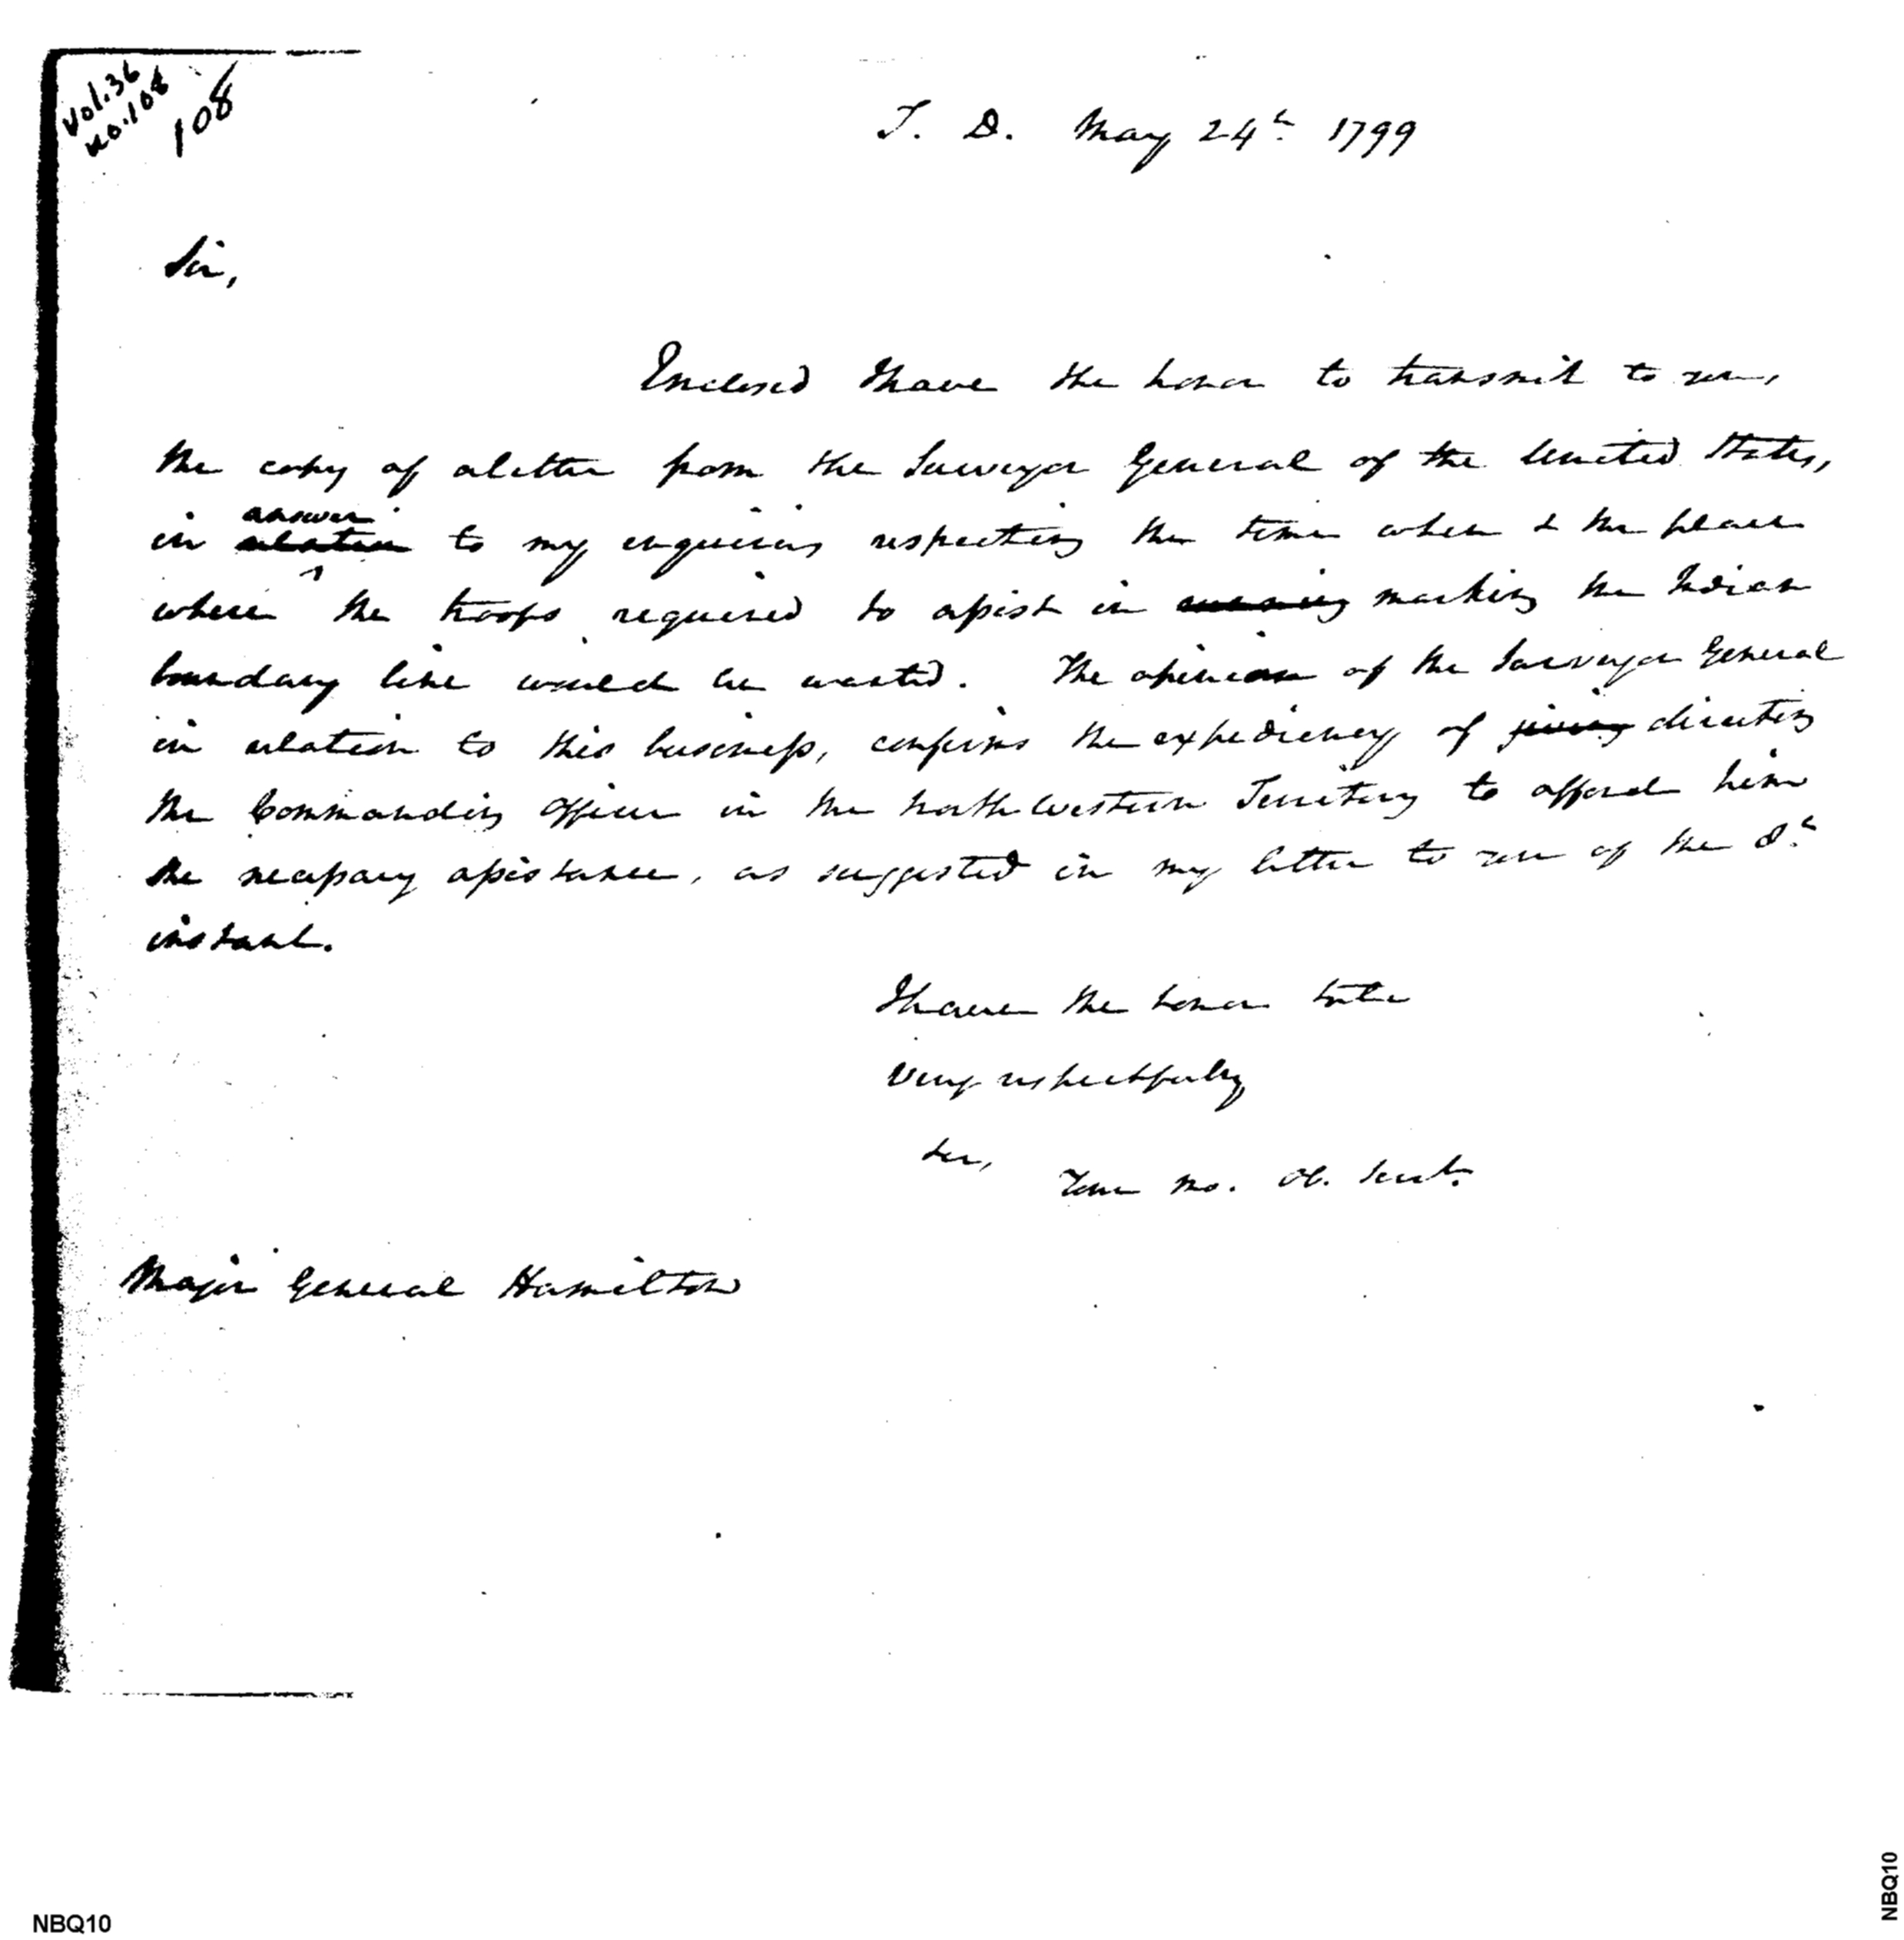 Vol. 36
no. 108
108
T. D. May 24th 1799
Sir,
Enclosed I have the honor to transmit to you,
the copy of a letter from the Surveyor General of the United States,
answer
in relation to my enquiries respecting the time when & the place
where the troops required to assist in running marking the Indian
boundary line would be wanted. The opinion of the Surveyor General
in relation to this business, confirms the expediency of giving directing
the Commanding Officer in the North Western Territory to afford him
the necessary assistance, as suggested in my letter to you of the 8th
instant.
I have the honor to be
very respectfully
Sir,
Your mo. ob. servt.
Major General Hamilton
NBQ10
NBQ10